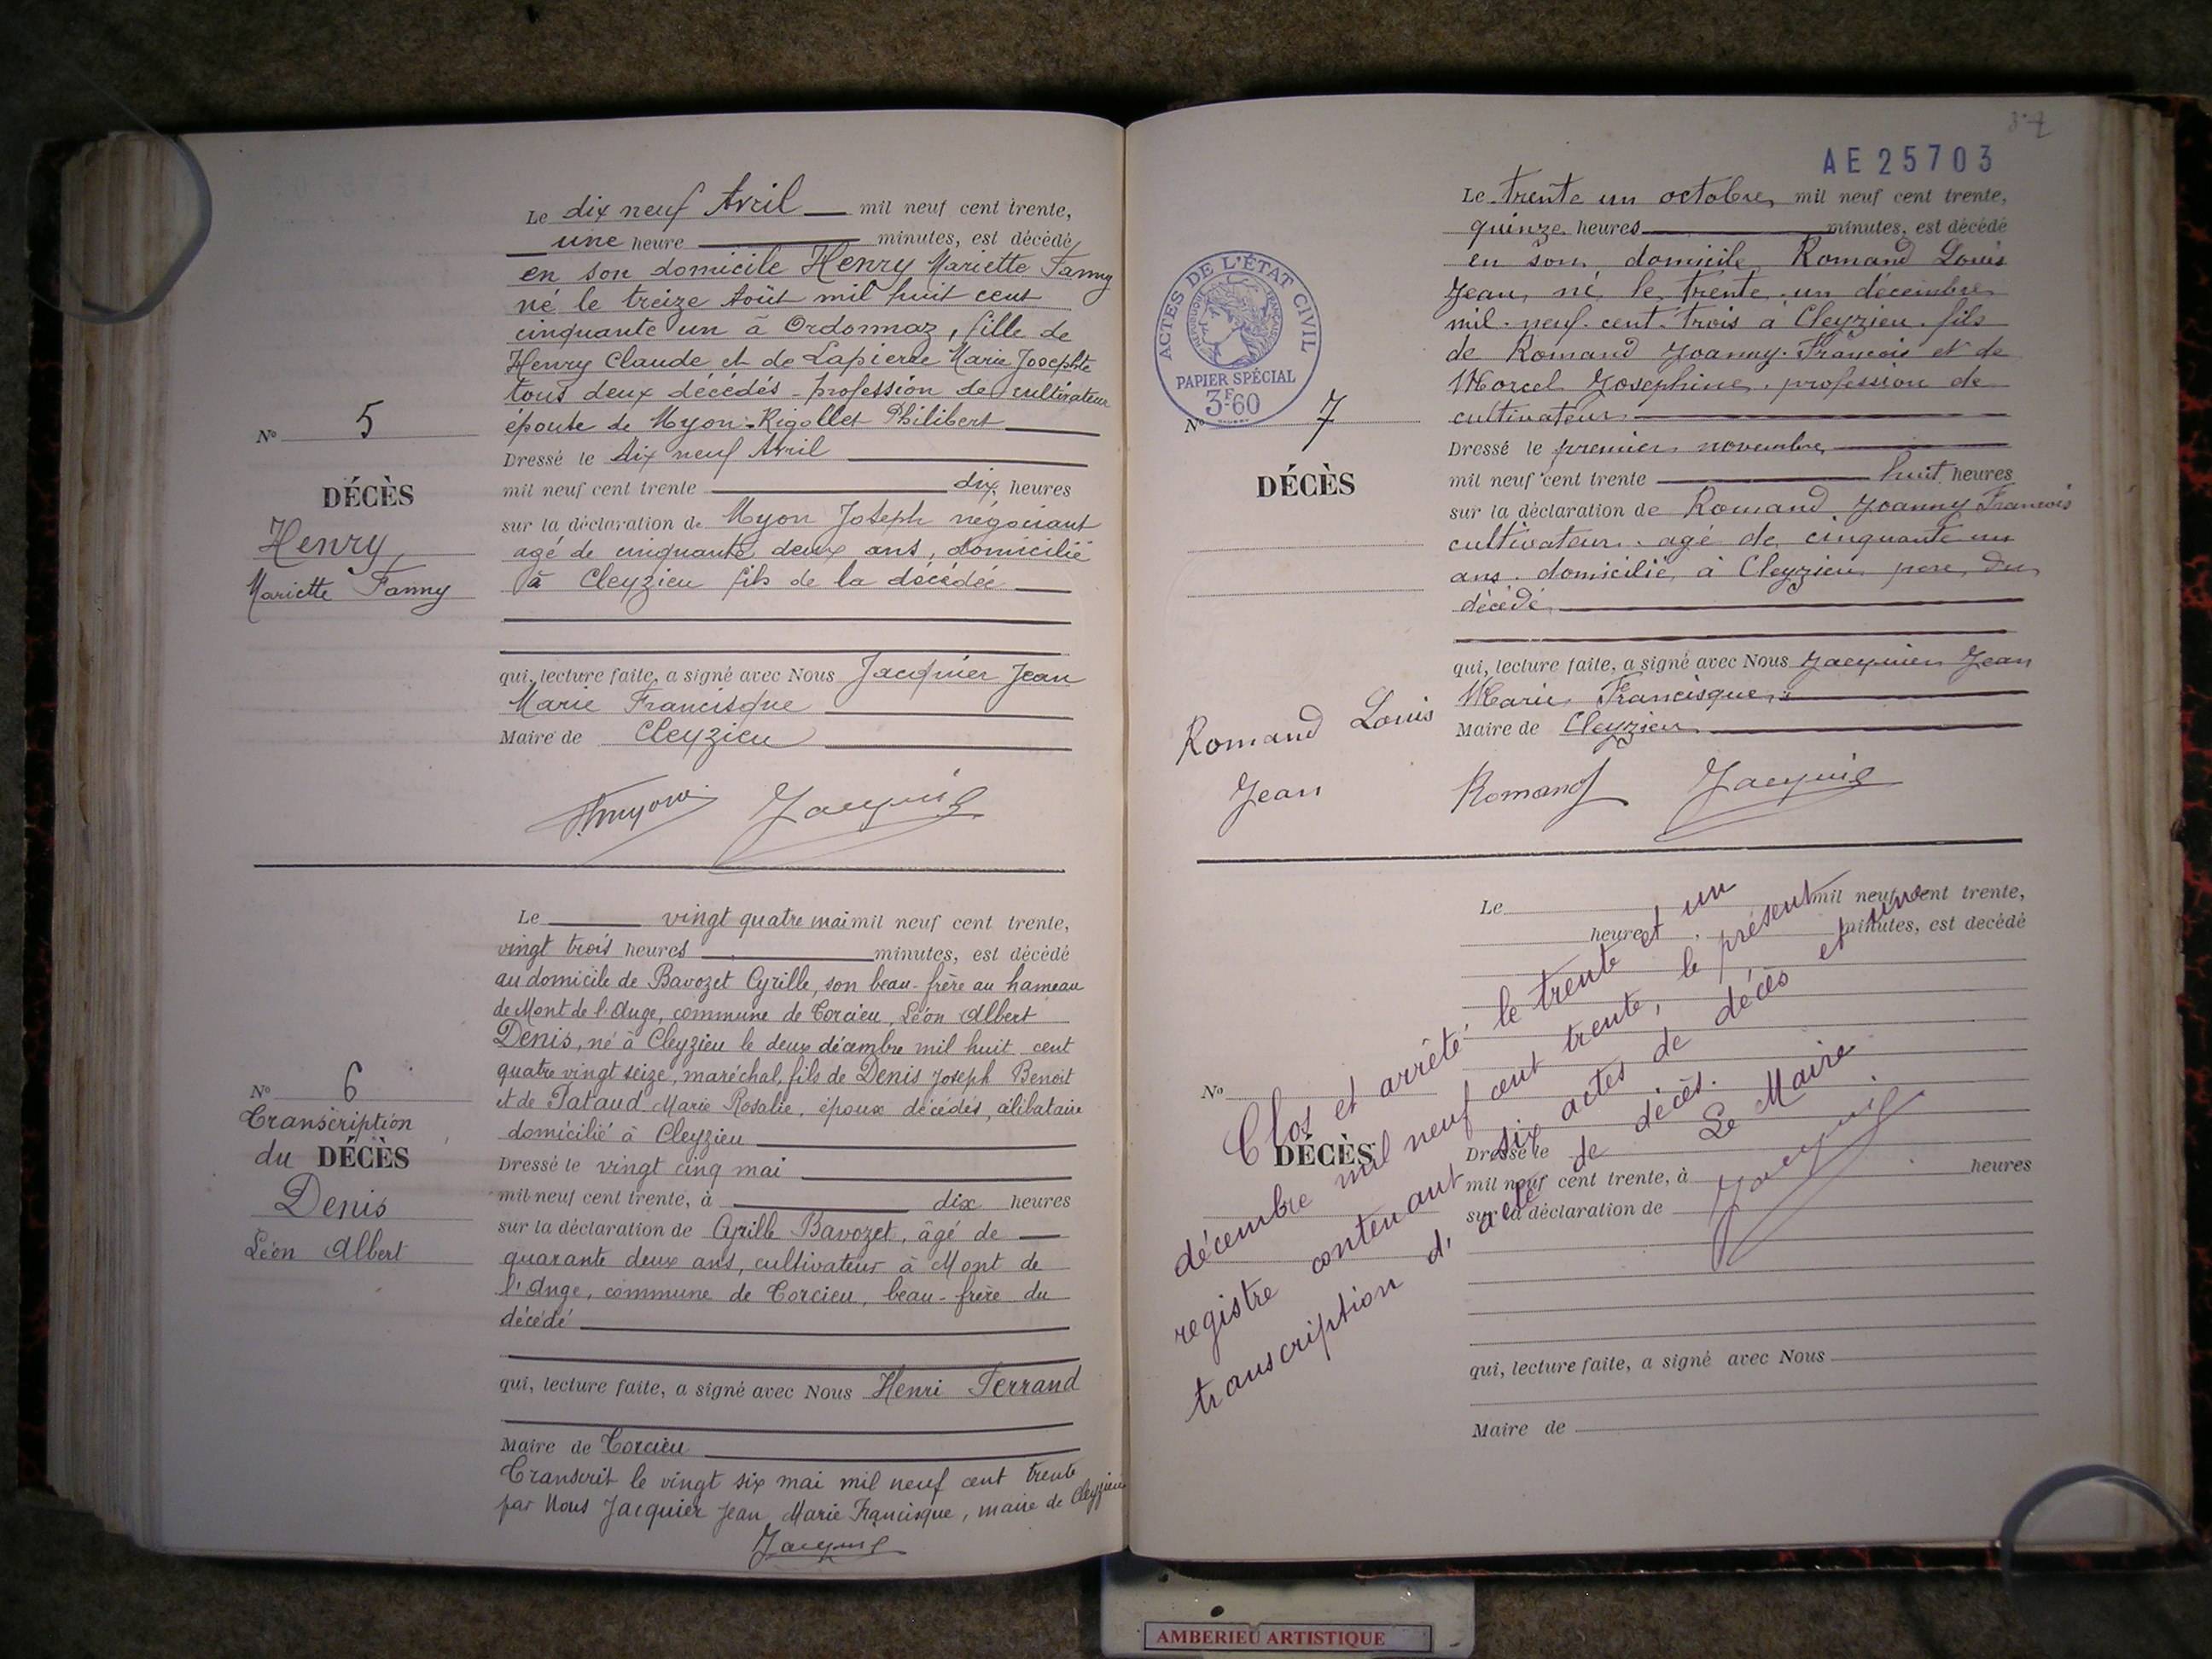 Le dix neuf Avril mil neuf cent trente,
une heure minutes, est décédé
en son domicile Henry Mariette Fanny
né le treize Août mil huit cent
cinquante un à Ordonnaz, fille de
Henry Claude et de Lapierre Marie Josephte
tous deux décédés - profession de cultivateur
épouse de Myon-Rigollet Philibert
Nº 5
Dressé le dix neuf Avril
DÉCÈS
mil neuf cent trente dix heures
Henry
Mariette Fanny
sur la déclaration de Myon Joseph négociant
agé de cinquante deux ans, domicilié
à Cleyzieu fils de la décédée
qui, lecture faite, a signé avec Nous Jacquier Jean
Marie Francisque
Maire de Cleyzieu
Jacquier
Le vingt quatre mai mil neuf cent trente,
vingt trois heures minutes, est décédé
au domicile de Bavozet Cyrille, son beau-frère au hameau
de Mont de l'Ange, commune de Torcieu, Léon Albert
Denis, né à Cleyzieu le deux décembre mil huit cent
quatre vingt seize, maréchal, fils de Denis Joseph Benoit
et de Pataud Marie Rosalie, époux décédés, célibataire
domicilié à Cleyzieu
Nº 6
Transcription
du DÉCÈS
Denis
Léon Albert
Dressé le vingt cinq mai
mil neuf cent trente, à dix heures
sur la déclaration de Cyrille Bavozet, âgé de
quarante deux ans, cultivateur à Mont de
l'Ange, commune de Torcieu, beau-frère du
décédé
qui, lecture faite, a signé avec Nous Henri Ferrand
Maire de Torcieu
Transcrit le vingt six mai mil neuf cent trente
par Nous Jacquier Jean Marie Francisque, maire de Cleyzieu
Jacquier
37
AE 25703
Le trente un octobre mil neuf cent trente,
quinze heures minutes, est décédé
en son domicile Romand Louis
Jean, né le trente un décembre
mil neuf cent trois à Cleyzieu fils
de Romand Joanny François et de
Morcel Josephine, profession de
cultivateur
ACTES DE L'ÉTAT CIVIL
RÉPUBLIQUE FRANÇAISE
PAPIER SPÉCIAL
3F60
Nº 7
DÉCÈS
Romand Louis
Jean
Dressé le premier novembre
mil neuf cent trente huit heures
sur la déclaration de Romand Joanny François
cultivateur agé de cinquante un
ans domicilié à Cleyzieu père du
décédé
qui, lecture faite, a signé avec Nous Jacquier Jean
Marie Francisque
Maire de Cleyzieu
Romand Jacquier
Le mil neuf cent trente,
heure , minutes, est decédé
Nº
DÉCÈS
Dressé le
mil neuf cent trente, à heures
sur la déclaration de
qui, lecture faite, a signé avec Nous
Maire de
Clos et arrêté le trente et un
décembre mil neuf cent trente, le présent
registre contenant six actes de décès et une
transcription d'acte de décès.
Le Maire
Jacquier
AMBERIEU ARTISTIQUE